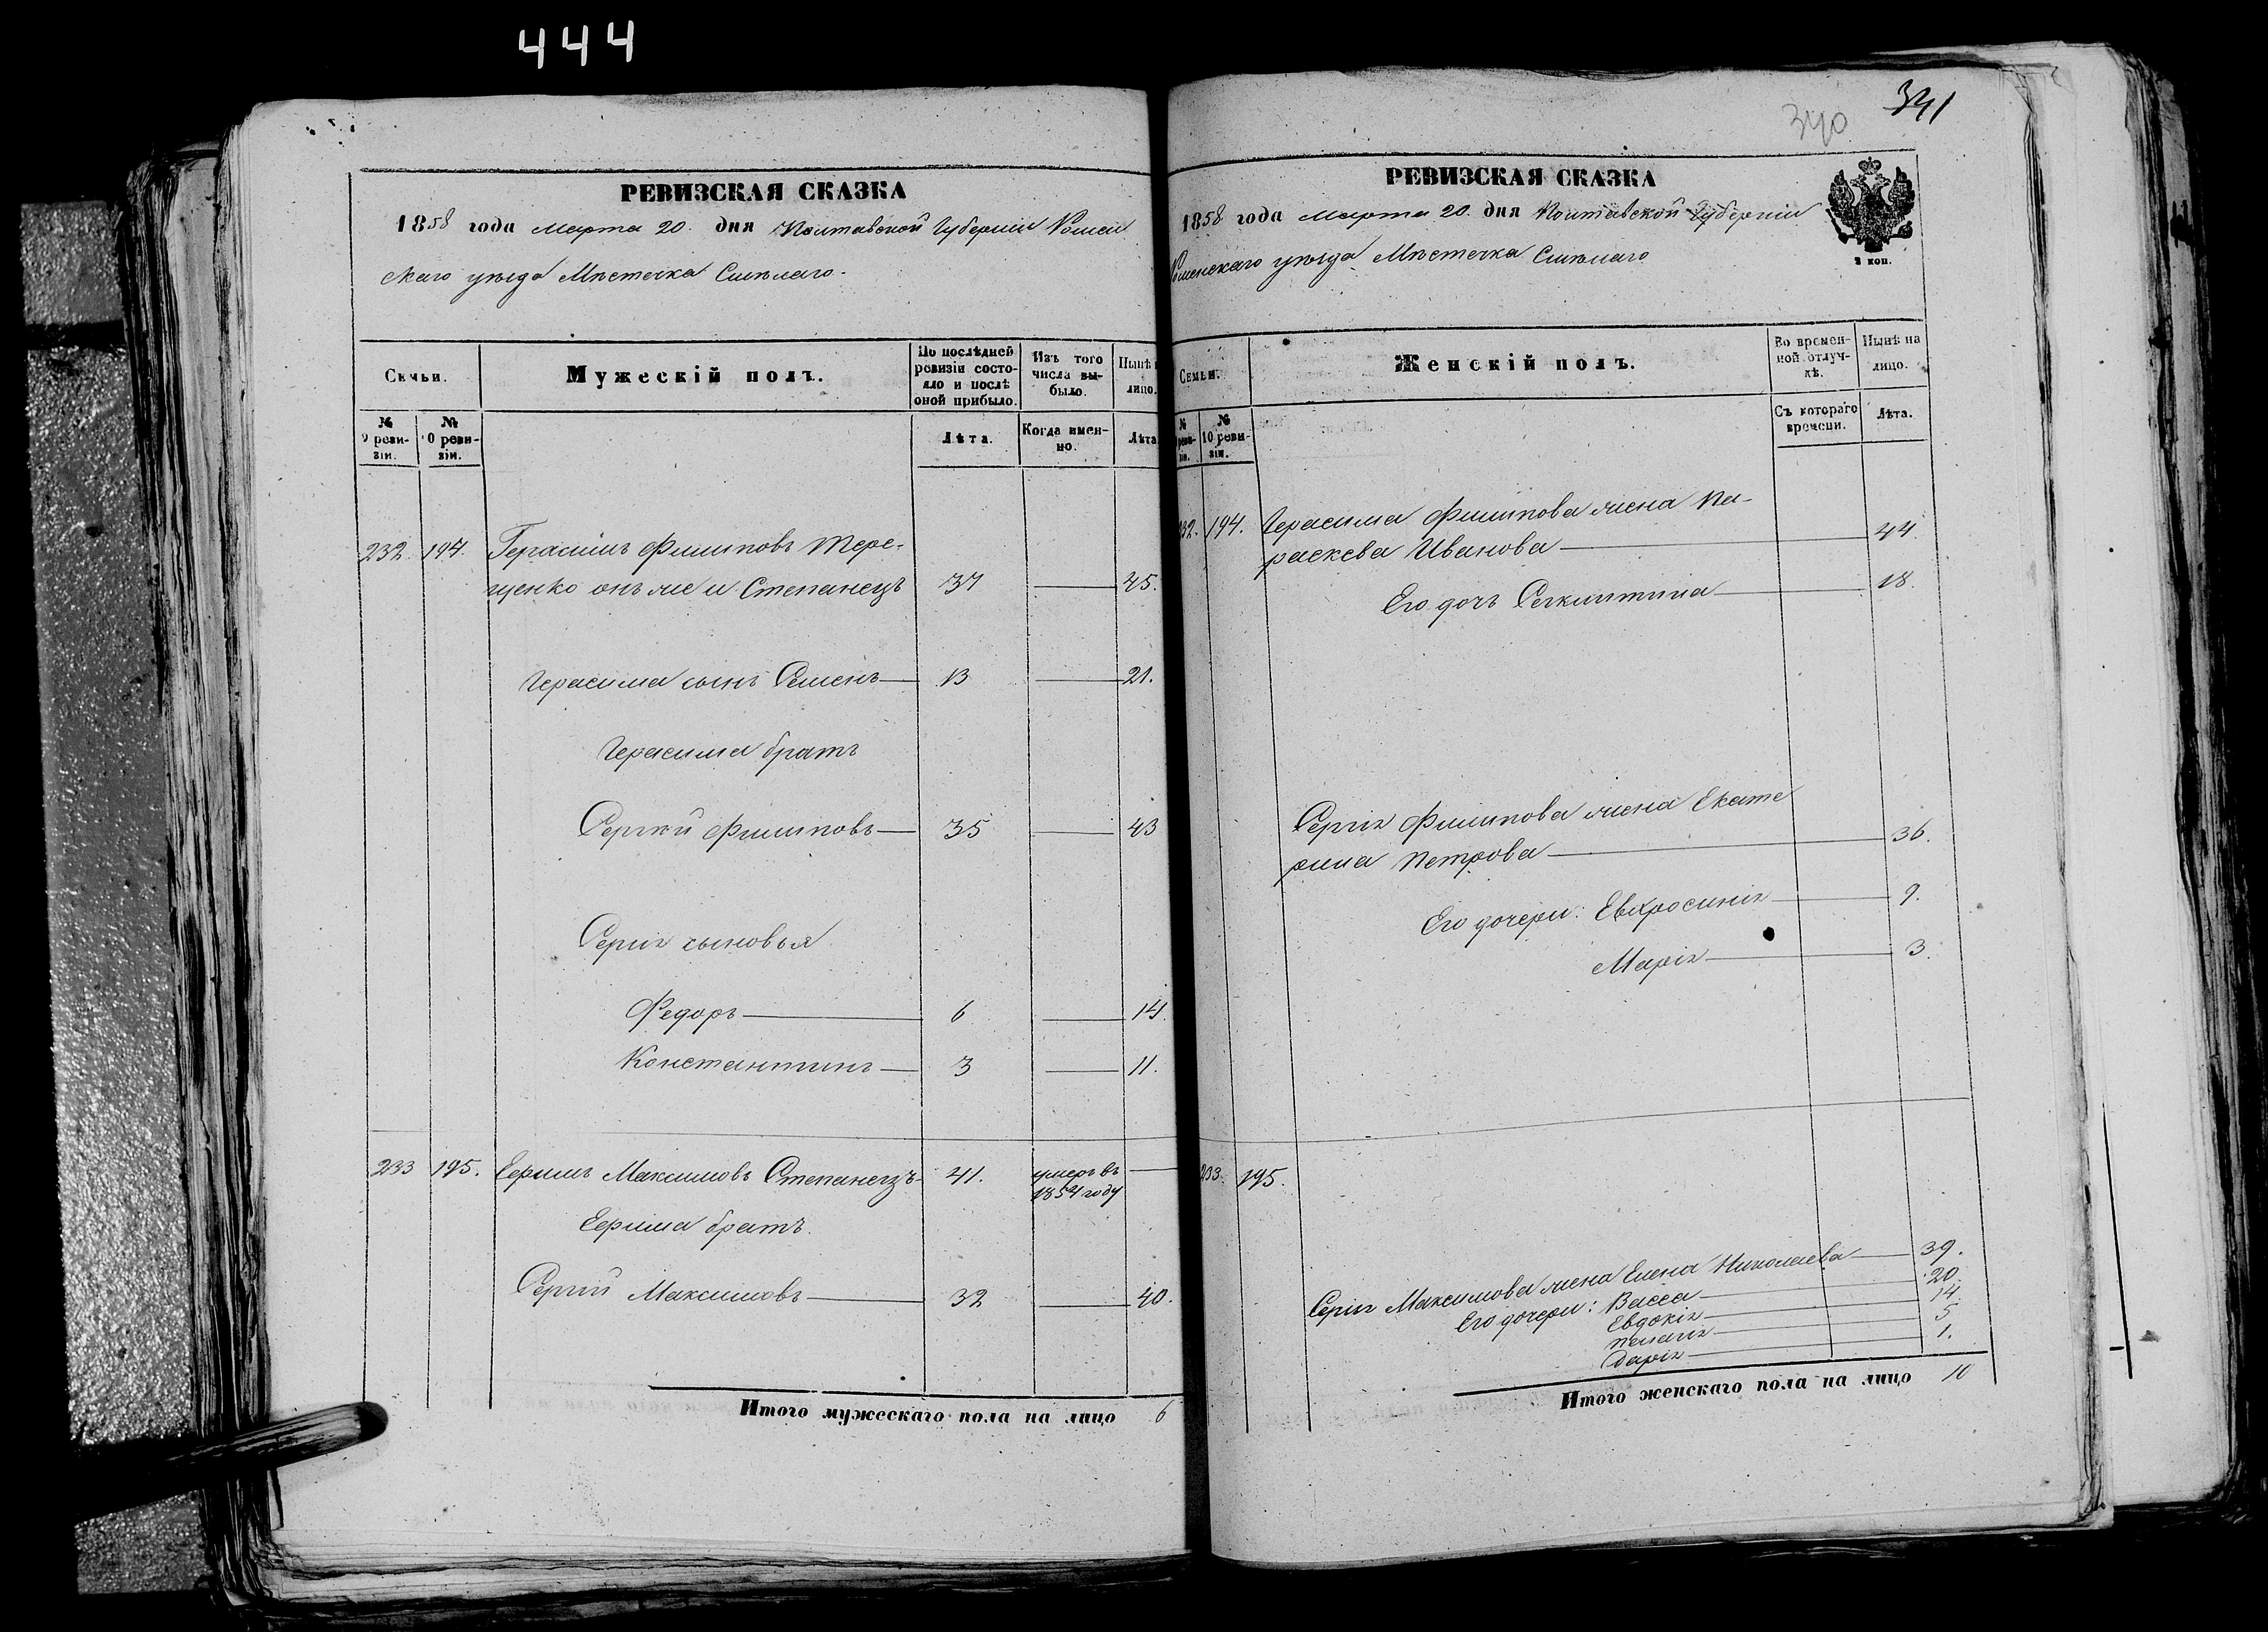 444
340
341
РЕВИЗСКАЯ СКАЗКА
1858 года Марта 20. дня Полтавской Губерніи Ромен
скаго уѣзда Мѣстечка Смѣлаго.
Семьи.
Мужескій полъ.
По послѣдней ревизіи состояло и послѣ оной прибыло.
Изъ того числа выбыло.
Нынѣ на лицо.
№ 9 ревизіи.
№ 10 ревизіи.
Лѣта.
Когда именно.
Лѣта.
232. 194. Герасимъ Филиповъ Тере-
щенко онъ же и Степанецъ 37 45.
Герасима сынъ Семенъ 13 21.
Герасима братъ
Сергій Филиповъ 35 43
Сергія сыновья
Федоръ 6 14.
Константинъ 3 11.
233 195. Ефимъ Максимовъ Степанецъ 41. умеръ въ
1854 году
Ефима братъ
Сергій Максимовъ 32 40.
Итого мужескаго пола на лицо 6
РЕВИЗСКАЯ СКАЗКА
1858 года Марта 20. дня Полтавской Губерніи
Роменскаго уѣзда Мѣстечка Смѣлаго
2 коп.
Семьи.
Женскій полъ.
Во временной отлучкѣ.
Нынѣ на лицо.
№ ревизіи.
№ 10 ревизіи.
Съ котораго времени.
Лѣта.
232. 194. Герасима Филипова жена Па-
раскева Иванова 44
Его дочь 18
Сергія Филипова жена Екате
рина Петрова 36.
Его дочери: Евфросинія 9.
Марія 3.
233. 195.
Сергія Максимова жена Елена Николаева 39.
Его дочери: Васса 20.
Евдокія 14.
Пелагія 5
Дарія 1.
Итого женскаго пола на лицо 10